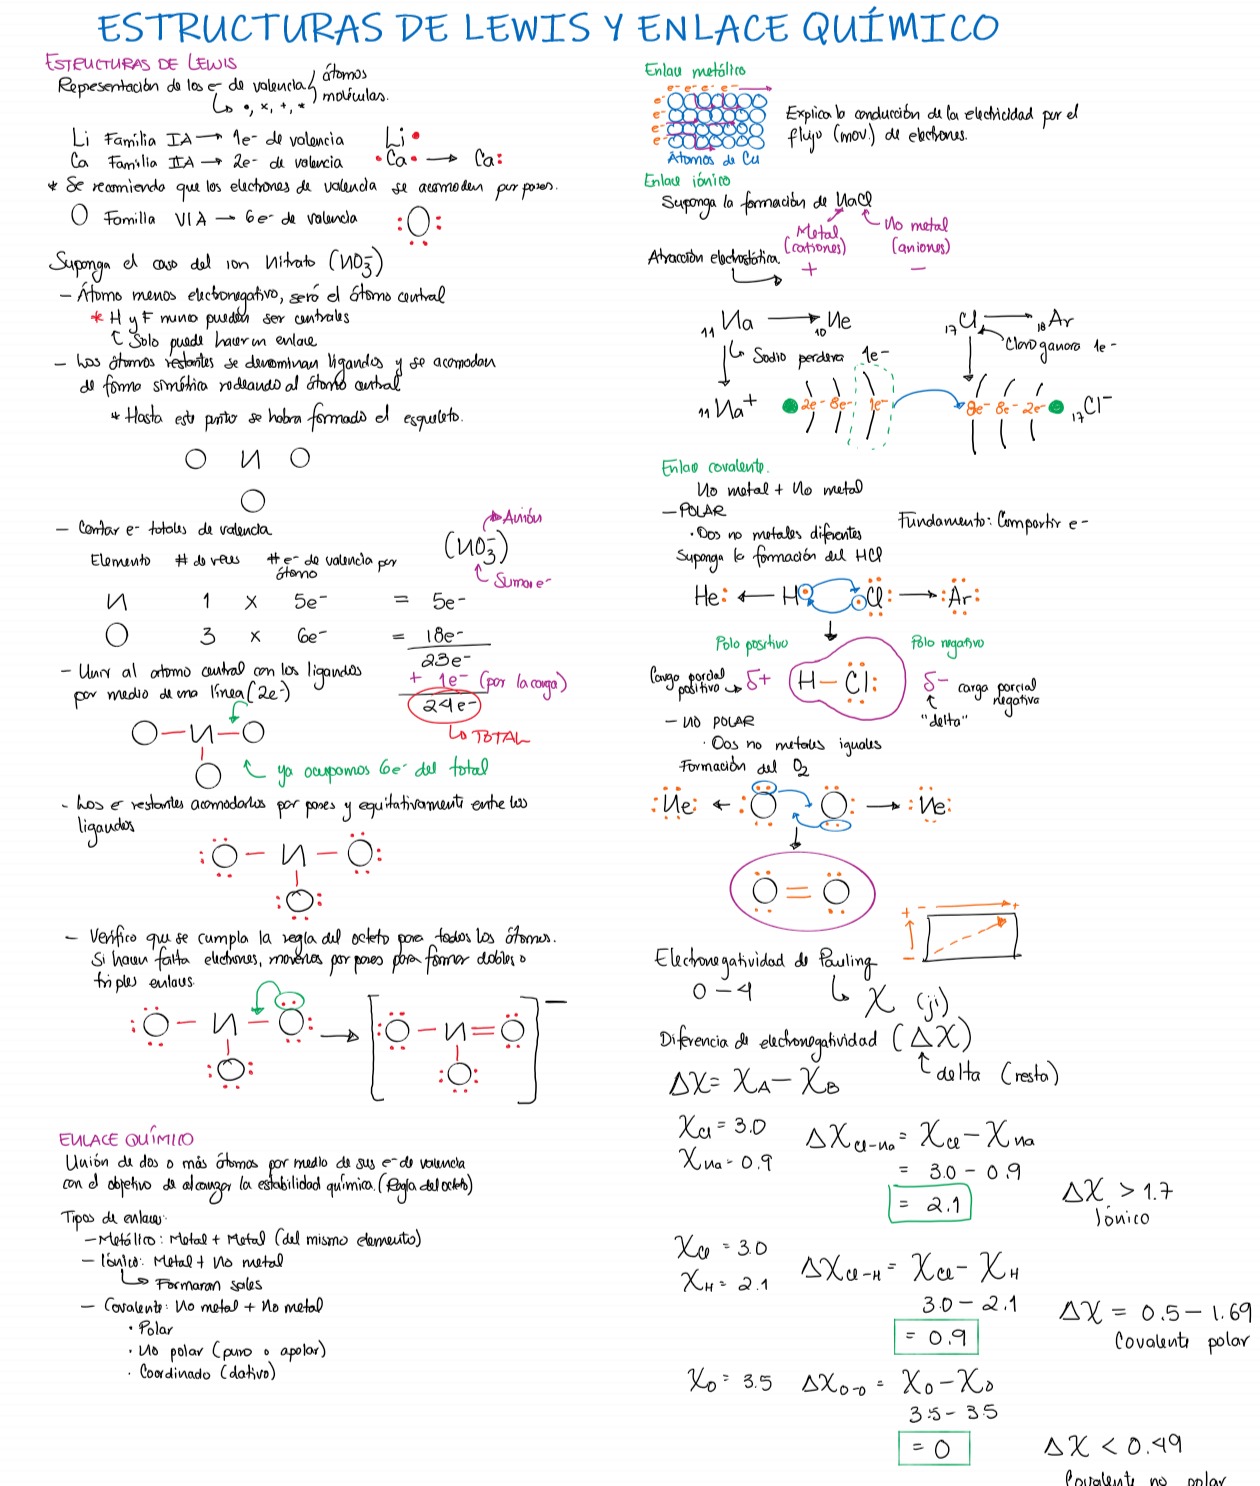 ESTRUCTURAS DE LEWIS Y ENLACE QUÍMICO
ESTRUCTURAS DE LEWIS
Representación de los e- de valencia átomos
moléculas.
↳ •, x, +, *
Li Familia IA → 1e- de valencia Li•
Ca Familia IIA → 2e- de valencia •Ca• → Ca:
* Se recomienda que los electrones de valencia se acomoden por pares.
O Familia VIA → 6e- de valencia :O:
Suponga el caso del ion Nitrato (NO3-)
- Átomo menos electronegativo, será el átomo central
* H y F nunca pueden ser centrales
Solo puede hacer un enlace
- Los átomos restantes se denominan ligandos y se acomodan
de forma simétrica rodeando al átomo central
* Hasta este punto se habra formado el esqueleto.
O N O
O
- Contar e- totales de valencia
Elemento # de veces # e- de valencia por
átomo
N 1 x 5e- = 5e-
O 3 x 6e- = 18e-
23e-
+ 1e- (por la carga)
24e-
↳ TOTAL
(NO3-)
Anión
Sumar e-
- Unir al atomo central con los ligandos
por medio de una línea (2e-)
O—N—O
O
ya ocupamos 6e- del total
- Los e- restantes acomodarlos por pares y equitativamente entre los
ligandos
:O — N — O:
:O:
- Verifico que se cumpla la regla del octeto para todos los átomos.
Si hacen falta electrones, moverlos por pares para formar dobles o
triples enlaces
:O — N — O: → [:O — N = O]-
:O: :O:
ENLACE QUÍMICO
Unión de dos o más átomos por medio de sus e- de valencia
con el objetivo de alcanzar la estabilidad química. (Regla del octeto)
Tipos de enlace:
- Metálico: Metal + Metal (del mismo elemento)
- Iónico: Metal + No metal
↳ Formaran sales
- Covalente: No metal + No metal
• Polar
• No polar (puro o apolar)
• Coordinado (dativo)
Enlace metálico
e- e- e- e- e-
e-
e-
e-
Átomos de Cu
Explica la conducción de la electricidad por el
flujo (mov) de electrones.
Enlace iónico
Suponga la formación de NaCl
Metal
(cationes)
+
No metal
(aniones)
-
Atracción electrostática.
11Na → 10Ne
↳ Sodio perdera 1e-
17Cl → 18Ar
Cloro ganara 1e-
11Na+ 2e- 8e- 1e- 8e- 8e- 2e- 17Cl-
Enlace covalente.
No metal + No metal
- POLAR
• Dos no metales diferentes
Fundamento: Compartir e-
Suponga la formación del HCl
He: ← H Cl: → :Ar:
Polo positivo Polo negativo
Carga parcial
positiva → δ+ H — Cl: δ- carga parcial
negativa
"delta"
- NO POLAR
• Dos no metales iguales
Formación del O2
:Ne: ← :O O: → :Ne:
O = O
Electronegatividad de Pauling
0 - 4 ↳ X (ji)
+ - +
-
Diferencia de electronegatividad (ΔX)
delta (resta)
ΔX = XA - XB
XCl = 3.0
XNa = 0.9
ΔXCl-Na = XCl - XNa
= 3.0 - 0.9
= 2.1
ΔX > 1.7
Iónico
XCl = 3.0
XH = 2.1
ΔXCl-H = XCl - XH
3.0 - 2.1
= 0.9
ΔX = 0.5 - 1.69
Covalente polar
XO = 3.5 ΔXO-O = XO - XO
3.5 - 3.5
= 0
ΔX < 0.49
Covalente no polar